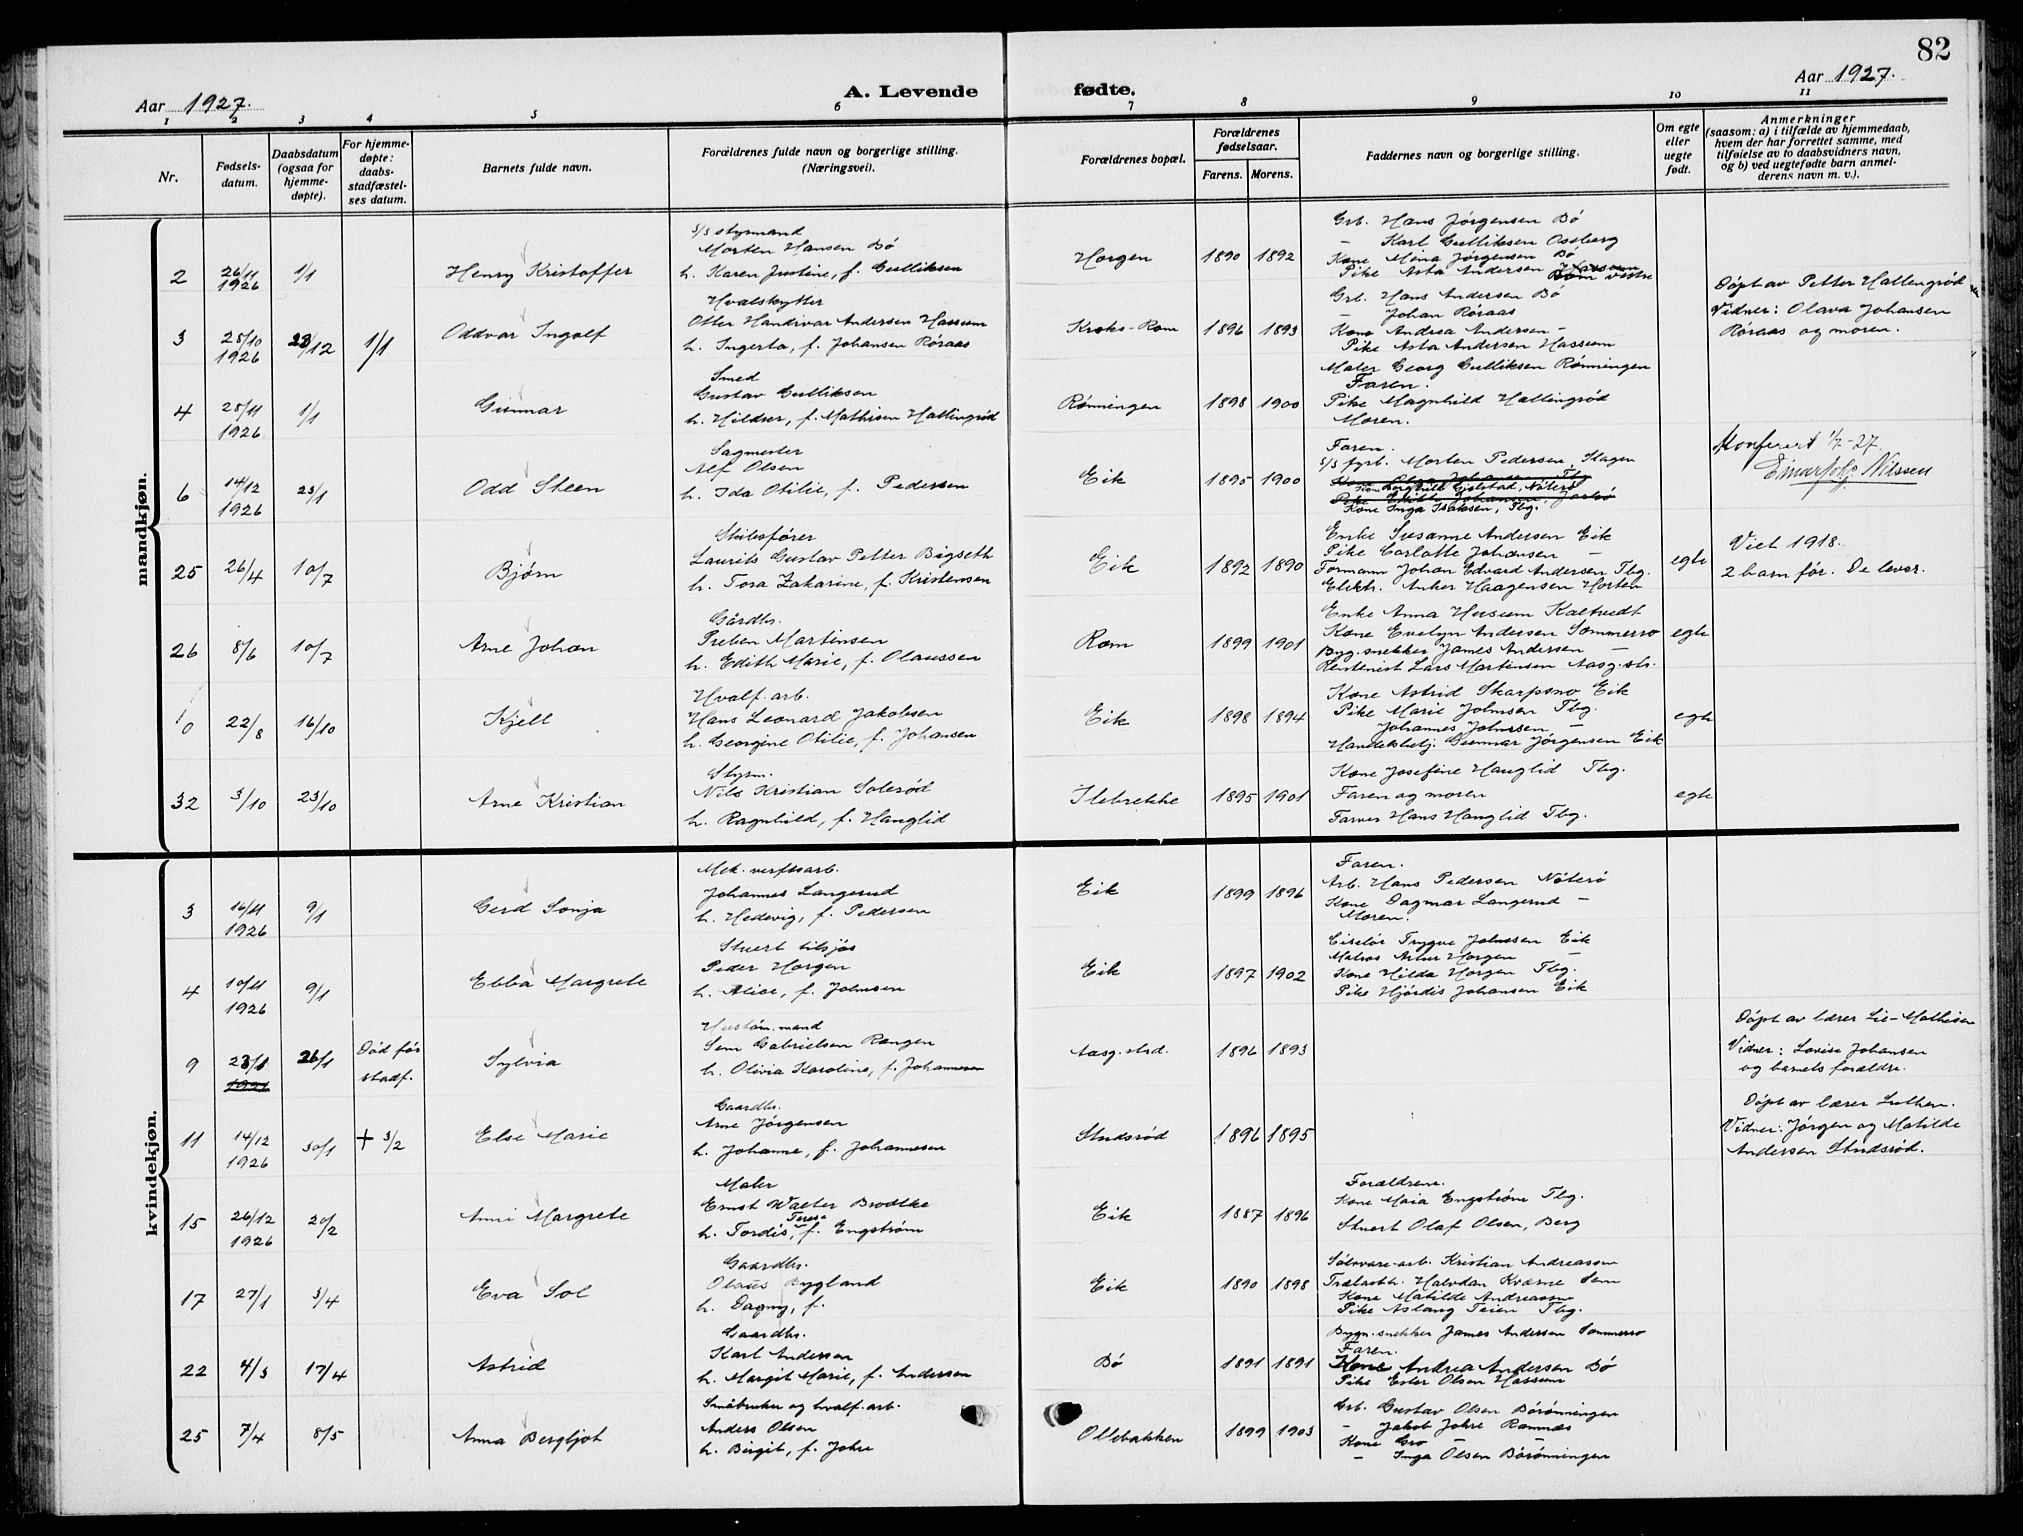 82
Aar 1927.
A. Levende fødte.
Aar 1927.
1 2 3 4 5 6 7 8 9 10 11
Nr.
Fødsels-
datum.
Daabsdatum
(ogsaa for
hjemme-
døpte).
For hjemme-
døpte:
daabs-
stadfæstel-
ses datum.
Barnets fulde navn.
Forældrenes fulde navn og borgerlige stilling.
(Næringsvei).
Forældrenes bopæl.
Forældrenes
fødselsaar.
Farens. Morens.
Faddernes navn og borgerlige stilling.
Om egte
eller
uegte
født.
Anmerkninger
(saasom: a) i tilfælde av hjemmedaab,
hvem der har forrettet samme, med
tilføielse av to daabsvidners navn,
og b) ved uegtefødte barn anmel-
derens navn m. v.).
mandkjøn.
2
26/11
1926
1/1
Henry Kristoffer
S/S styrmand
Morten Hansen Bø
h. Karen Justine, f. Gulliksen
Horgen
1890 1892
Grb. Hans Jørgensen Bø
— Karl Gulliksen Ossberg
Kone Mina Jørgensen Bø
Pike Asta Andersen Hassum
3
25/10
1926
28/12
1/1
Oddvar Ingolf
Hvalskytter
Otter Handivar Andersen Hassum
h. Ingerta, f. Johansen Røraas
Kroks-Rom
1896 1893
Grb. Hans Andersen Bø
— Johan Røraas
Kone Andrea Andersen —
Pike Asta Andersen Hassum
Døpt av Petter Hallengrød
Vidner: Olava Johansen
Røraas og moren.
4
25/11
1926
1/1
Gunnar
Smed
Gustav Gulliksen
h. Hildur, f. Mathisen Hallingrød
Rønningen
1898 1900
Maler Georg Gulliksen Rønningen
Faren.
Pike Magnhild Hallingrød
Moren.
6
14/12
1926
23/1
Odd Steen
Sagmester
Alf Olsen
h. Ida Otilie, f. Pedersen
Eik
1895 1900
Faren.
S/S fyrb. Morten Pedersen Slagen
Kone Inga Isaksen, Tbg.
Konferert 1/7-27
Einar Nilssen
25
26/4
10/7
Bjørn
Skibsfører
Laurits Gustav Petter Bigseth
h. Tora Zakarine, f. Kristensen
Eik
1892 1890
Enke Susanne Andersen Eik
Pike Carlotte Johansen —
Formann Johan Edvard Andersen Tbg.
Elektr. Anker Haagensen Horten
egte
Viet 1918.
2 barn før. De lever.
26
8/6
10/7
Arne Johan
Gårdbr.
Preben Martinsen
h. Edith Marie, f. Olaussen
Rom
1899 1901
Enke Anna Husum Kaltvedt
Kone Evelyn Andersen Sommerro
Byg.snekker James Andersen —
Rentenist Lars Martinsen Aasg.str.
egte
0
22/8
16/10
Kjell
Hvalf. arb.
Hans Leonard Jakobsen
h. Georgine Otilie, f. Johansen
Eik
1898 1894
Kone Astrid Skarpsno Eik
Pike Marie Johnsen Tbg.
Johannes Johnsen —
Handelsbetj. Gunnar Jørgensen Eik
egte
32
3/10
23/10
Arne Kristian
Styrm.
Nils Kristian Solerød
h. Ragnhild, f. Hanglid
Ilebrekke
1895 1901
Kone Josefine Hanglid Tbg.
Faren og moren
Farver Hans Hanglid Tbg.
egte
kvindekjøn.
3
16/11
1926
9/1
Gerd Sonja
Mek. verftsarb.
Johannes Langerud
h. Hedevig, f. Pedersen
Eik
1899 1896
Faren.
Arb. Hans Pedersen Nøterø
Kone Dagmar Langerud —
Moren.
4
10/11
1926
9/1
Ebba Margrete
Stuert tilsjøs
Peder Horgen
h. Alice, f. Johnsen
Eik
1897 1902
Ciselør Trygve Johnsen Eik
Matros Artur Horgen —
Kone Hilda Horgen Tbg.
Pike Hjørdis Johansen Eik
9
23/1
26/1
Død før
stadf.
Sylvia
Hustøm. mand
Sem Gabrielsen Rangen
h. Olivia Karoline, f. Johannesen
Aasg.strd.
1896 1893
Døpt av lærer Lie-Mathisen
Vidner: Lovise Johansen
og barnets forældre.
11
14/12
1926
30/1
+ 3/2
Else Marie
Gaardbr.
Arne Jørgensen
h. Johanne, f. Johannesen
Studsrød
1896 1895
Døpt av lærer Luthen.
Vidner: Jørgen og Matilde
Andersen Studsrød.
15
26/12
1926
20/2
Anni Margrete
Maler
Ernst Walter Brodtke
h. Tordis Terese, f. Engstrøm
Eik
1887 1896
Forældrene.
Kone Maia Engstrøm Tbg.
Stuert Olaf Olsen, Berg
17
27/1
3/4
Eva Sol
Gaardbr.
Olaus Bygland
h. Dagny, f.
Eik
1890 1898
Sølvvare-arb. Kristian Andreassen
Trælastb. Halvdan Kværne Sem
Kone Matilde Andreassen
Pike Aslaug Teien Tbg.
22
4/3
17/4
Astrid
Gaardbr.
Karl Andersen
h. Margit Marie, f. Andersen
Bø
1891 1891
Bygn.snekker James Andersen Sommerro
Faren.
Kone Andrea Andersen Bø
Pike Ester Olsen Hassum
25
7/4
8/5
Anna Bergljot
Småbruker og hvalf.arb.
Anders Olsen
h. Birgit, f. Johre
Ollebakken
1899 1903
Grb. Gustav Olsen Børønningen
— Jakob Johre Ramnæs
Kone Gro —
— Inga Olsen Børønningen